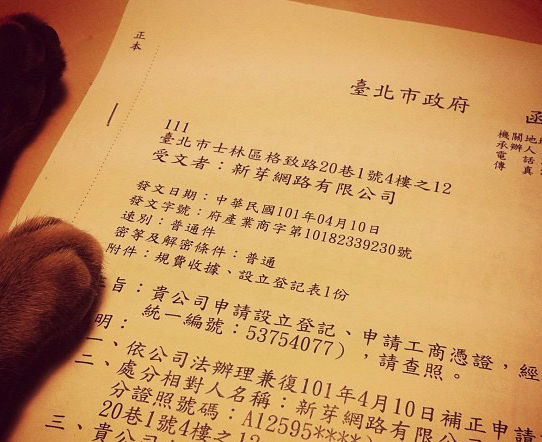 正本
臺北市政府 函
機關地
承辦人
電話
傳真
111
臺北市士林區格致路20巷1號4樓之12
受文者：新芽網路有限公司
發文日期：中華民國101年04月10日
發文字號：府產業商字第10182339230號
速別：普通件
密等及解密條件：普通
附件：規費收據、設立登記表1份
旨：貴公司申請設立登記、申請工商憑證，經
統一編號：53754077），請查照。
明：
一、依公司法辦理兼復101年4月10日補正申請
二、處分相對人名稱：新芽網路有限公
分證照號碼：A12595****
20巷1號4樓之12
三、貴公